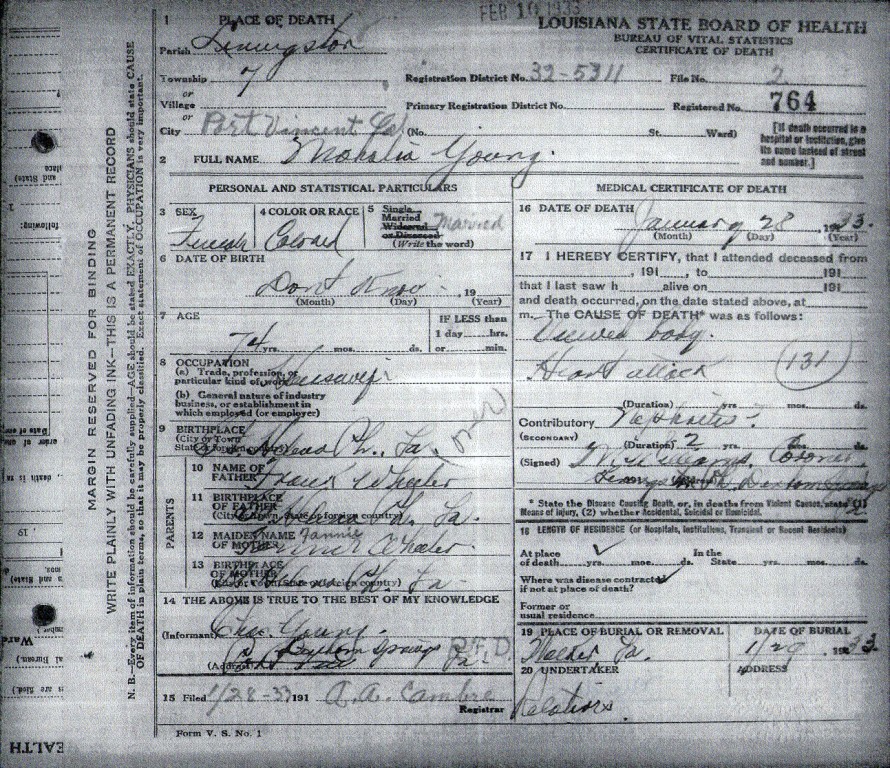 FEB 10 1933
LOUISIANA STATE BOARD OF HEALTH
BUREAU OF VITAL STATISTICS
CERTIFICATE OF DEATH
1 PLACE OF DEATH
Parish Livingston
Township 7
or
Village
or
City Port Vincent La (No. St. Ward)
Registration District No. 32-5311 File No. 2
Primary Registration District No. Registered No. 764
[If death occurred in a
hospital or institution, give
its name instead of street
and number.]
2 FULL NAME Mahalia Young.
PERSONAL AND STATISTICAL PARTICULARS
3 SEX 4 COLOR OR RACE 5 Single,
Married
Widowed
or Divorced
(Write the word)
Female Colored Married
6 DATE OF BIRTH
Dont Know 19
(Month) (Day) (Year)
7 AGE
IF LESS than
1 day hrs.
or min.
74 yrs. mos. ds.
8 OCCUPATION
(a) Trade, profession, or
particular kind of work Housewife
(b) General nature of industry
business, or establishment in
which employed (or employer)
9 BIRTHPLACE
(City or Town
State or foreign country)
St Helena Ph. La.
PARENTS
10 NAME OF
FATHER Frank Wheeler
11 BIRTHPLACE
OF FATHER
(City or Town, State or foreign country)
St Helena Ph. La.
12 MAIDEN NAME Fannie
OF MOTHER Wheeler
13 BIRTHPLACE
OF MOTHER
(City or Town State or foreign country)
St Helena Ph. La
14 THE ABOVE IS TRUE TO THE BEST OF MY KNOWLEDGE
(Informant) Chas. Young
(Address) Denham Springs R.F.D. La.
15 Filed 1/28-33 191 A. A. Cambre
Registrar
Form V. S. No. 1
MEDICAL CERTIFICATE OF DEATH
16 DATE OF DEATH
January 28 1933.
(Month) (Day) (Year)
17 I HEREBY CERTIFY, that I attended deceased from
, 191 , to 191
that I last saw h alive on 191
and death occurred, on the date stated above, at
m. The CAUSE OF DEATH* was as follows:
Viewed body.
Heart attack 131
(Duration) yrs. mos. ds.
Contributory Nephritis.
(SECONDARY) (Duration) 2 yrs. mos. ds.
(Signed) Williams, Coroner
Denham Springs
* State the Disease Causing Death, or, in deaths from Violent Causes, state (1)
Means of Injury, (2) whether Accidental, Suicidal or Homicidal.
18 LENGTH OF RESIDENCE (or Hospitals, Institutions, Transient or Recent Residents)
At place In the
of death yrs. mos. ds. State yrs. mos. ds.
Where was disease contracted
if not at place of death?
Former or
usual residence
19 PLACE OF BURIAL OR REMOVAL DATE OF BURIAL
Walker La. 1/29 1933.
20 UNDERTAKER ADDRESS
Relations
MARGIN RESERVED FOR BINDING
WRITE PLAINLY WITH UNFADING INK—THIS IS A PERMANENT RECORD
N. B.—Every item of information should be carefully supplied—AGE should be stated EXACTLY. PHYSICIANS should state CAUSE
OF DEATH in plain terms, so that it may be properly classified. Exact statement of OCCUPATION is very important.